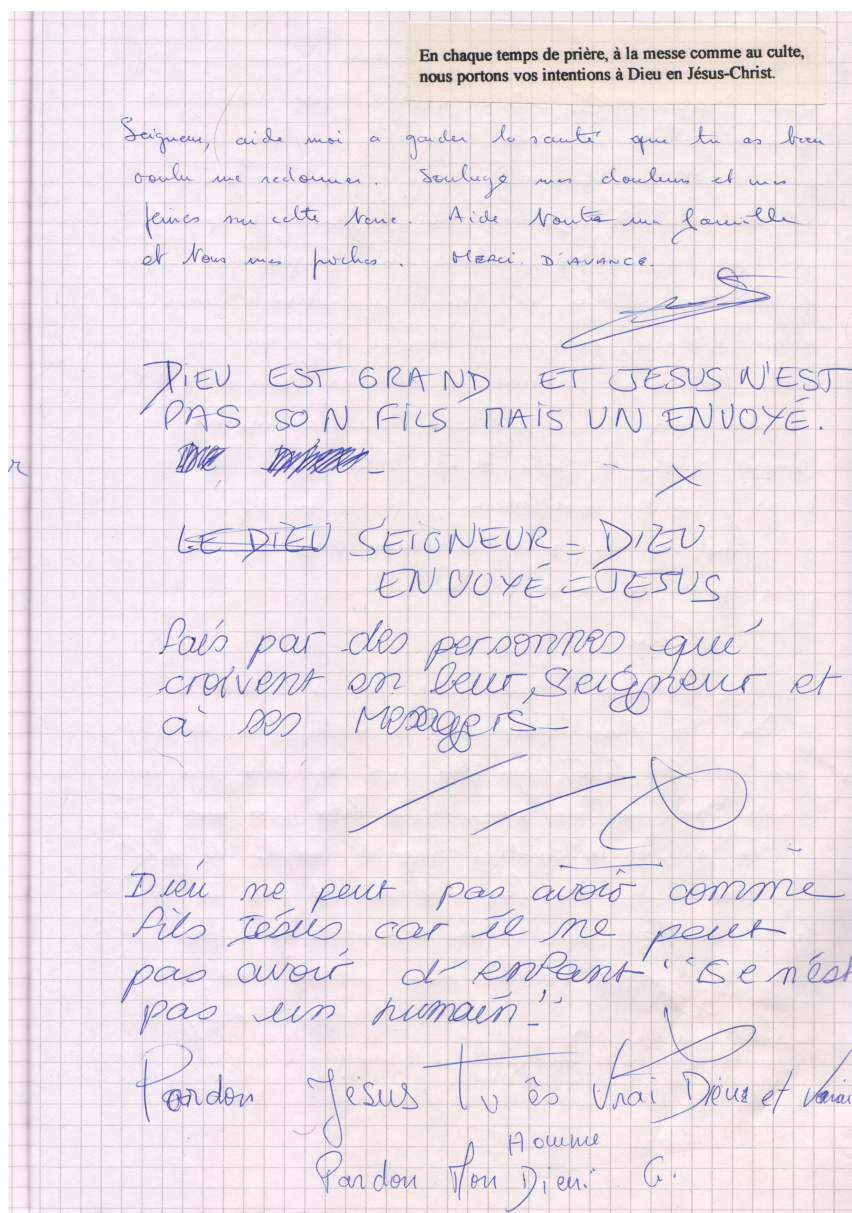 En chaque temps de prière, à la messe comme au culte,
nous portons vos intentions à Dieu en Jésus-Christ.
Seigneur, aide moi a garder la santé que tu as bien
voulu me redonner. Soulage mes douleurs et mes
peines sur cette terre. Aide toute ma famille
et tous mes proches. MERCI. D'AVANCE.
DIEU EST GRAND ET JESUS N'EST
PAS SON FILS MAIS UN ENVOYÉ.
X
LE DIEU SEIGNEUR = DIEU
ENVOYÉ = JESUS
fais par des personnes qui
croivent en leur, Seigneur et
à ses Messagers
Dieu ne peut pas avoir comme
fils Jésus car il ne peut
pas avoir d'enfant "se n'est
pas un humain"
Pardon Jesus Tu ès Vrai Dieu et Vrai
Homme
Pardon Mon Dieu. G.